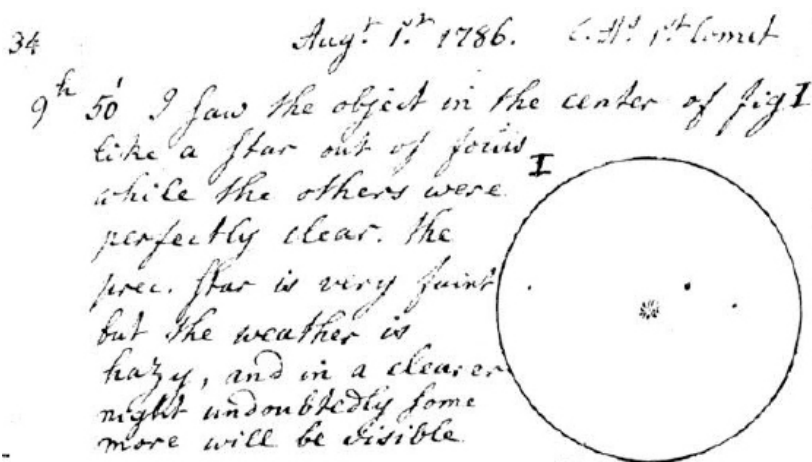 34 Augt. 1st. 1786. C. Hs 1st Comet
9h 50' I saw the object in the center of fig. I
like a star out of focus
I
while the others were
perfectly clear. the
prec. star is very faint
but the weather is
hazy, and in a clearer
night undoubtedly some
more will be visible